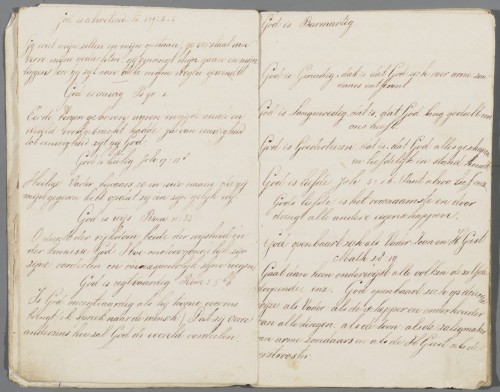 God is alwetend Ps 139: 1-6
Gij weet mijn zitten en mijn opstaan; gij verstaat van
verre mijne gedachten; gij omringt mijn gaan en mijn
liggen en gij zijt aan alle mijne wegen gewend
God is eeuwig Ps 90: 2
Eer de bergen geboren waren en gij de aarde en de
wereld voortgebracht hadt, ja van eeuwigheid
tot eeuwigheid zijt gij God
God is heilig Joh 17: 11
Heilige Vader bewaar ze in uwe naam, die gij
mij gegeven hebt opdat zij een zijn gelijk wij
God is wijs Rom 11: 33
O diepte der rijkdom beide der wijsheid en
der kennisse Gods! Hoe ondoorzoekelijk zijn
zijne oordeelen en onnaspeurlijk zijne wegen
God is regtvaardig Rom 3: 5-6
Is God onregtvaardig als hij toorn over ons
brengt ik spreek naar de mensch; Dat zij verre
anderzins hoe zal God de wereld oordeelen.
God is Barmhartig
God is Genadig, dat is, dat God zich over arme zon-
daars ontfermt
God is Langmoedig, dat is, dat God lang geduld met
ons heeft.
God is Goedertieren, dat is, dat God alles geschapen
en liefderijk in stand houdt
God is liefde Joh 3: 16 Want alzoo lief enz
Gods liefde is het voornaamste en door
dringt alle andere eigenschappen.
God openbaart zich als Vader Zoon en H Geest
Math 28: 19
Gaat dan heen onderwijst alle volken dezelve
doopende enz. God openbaart zich
als Vader als de Schepper en onderhouder
van alle dingen, als de Zoon als de zaligmaker
van arme zondaars en als de H Geest als de